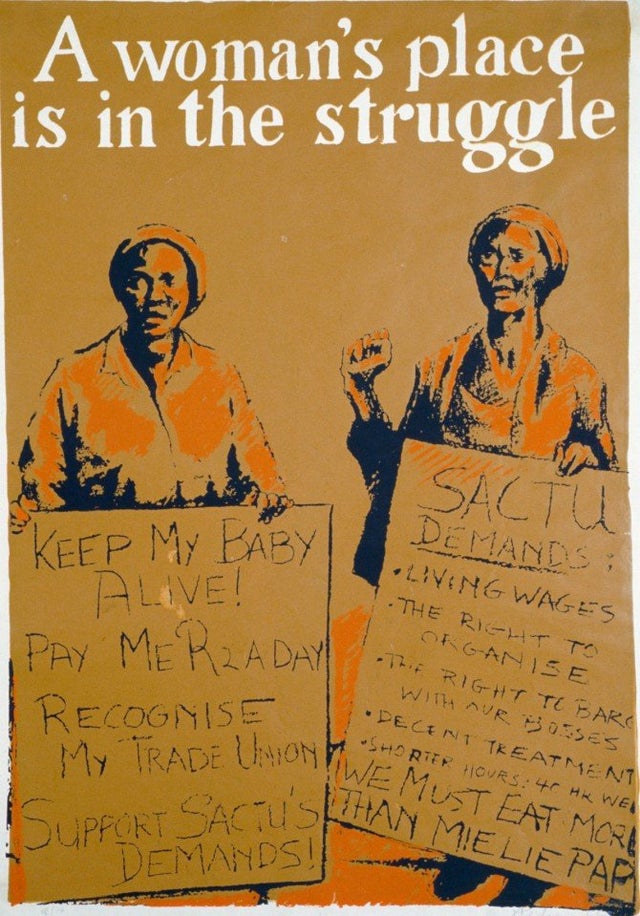 A woman's place
is in the struggle
KEEP MY BABY
ALIVE!
PAY ME R2 A DAY
RECOGNISE
MY TRADE UNION
SUPPORT SACTU'S
DEMANDS!
SACTU
DEMANDS:
• LIVING WAGES
• THE RIGHT TO
ORGANISE
• THE RIGHT TO BARG
WITH OUR BOSSES
• DECENT TREATMENT
• SHORTER HOURS: 40 HR WE
WE MUST EAT MORE
THAN MIELIE PAP